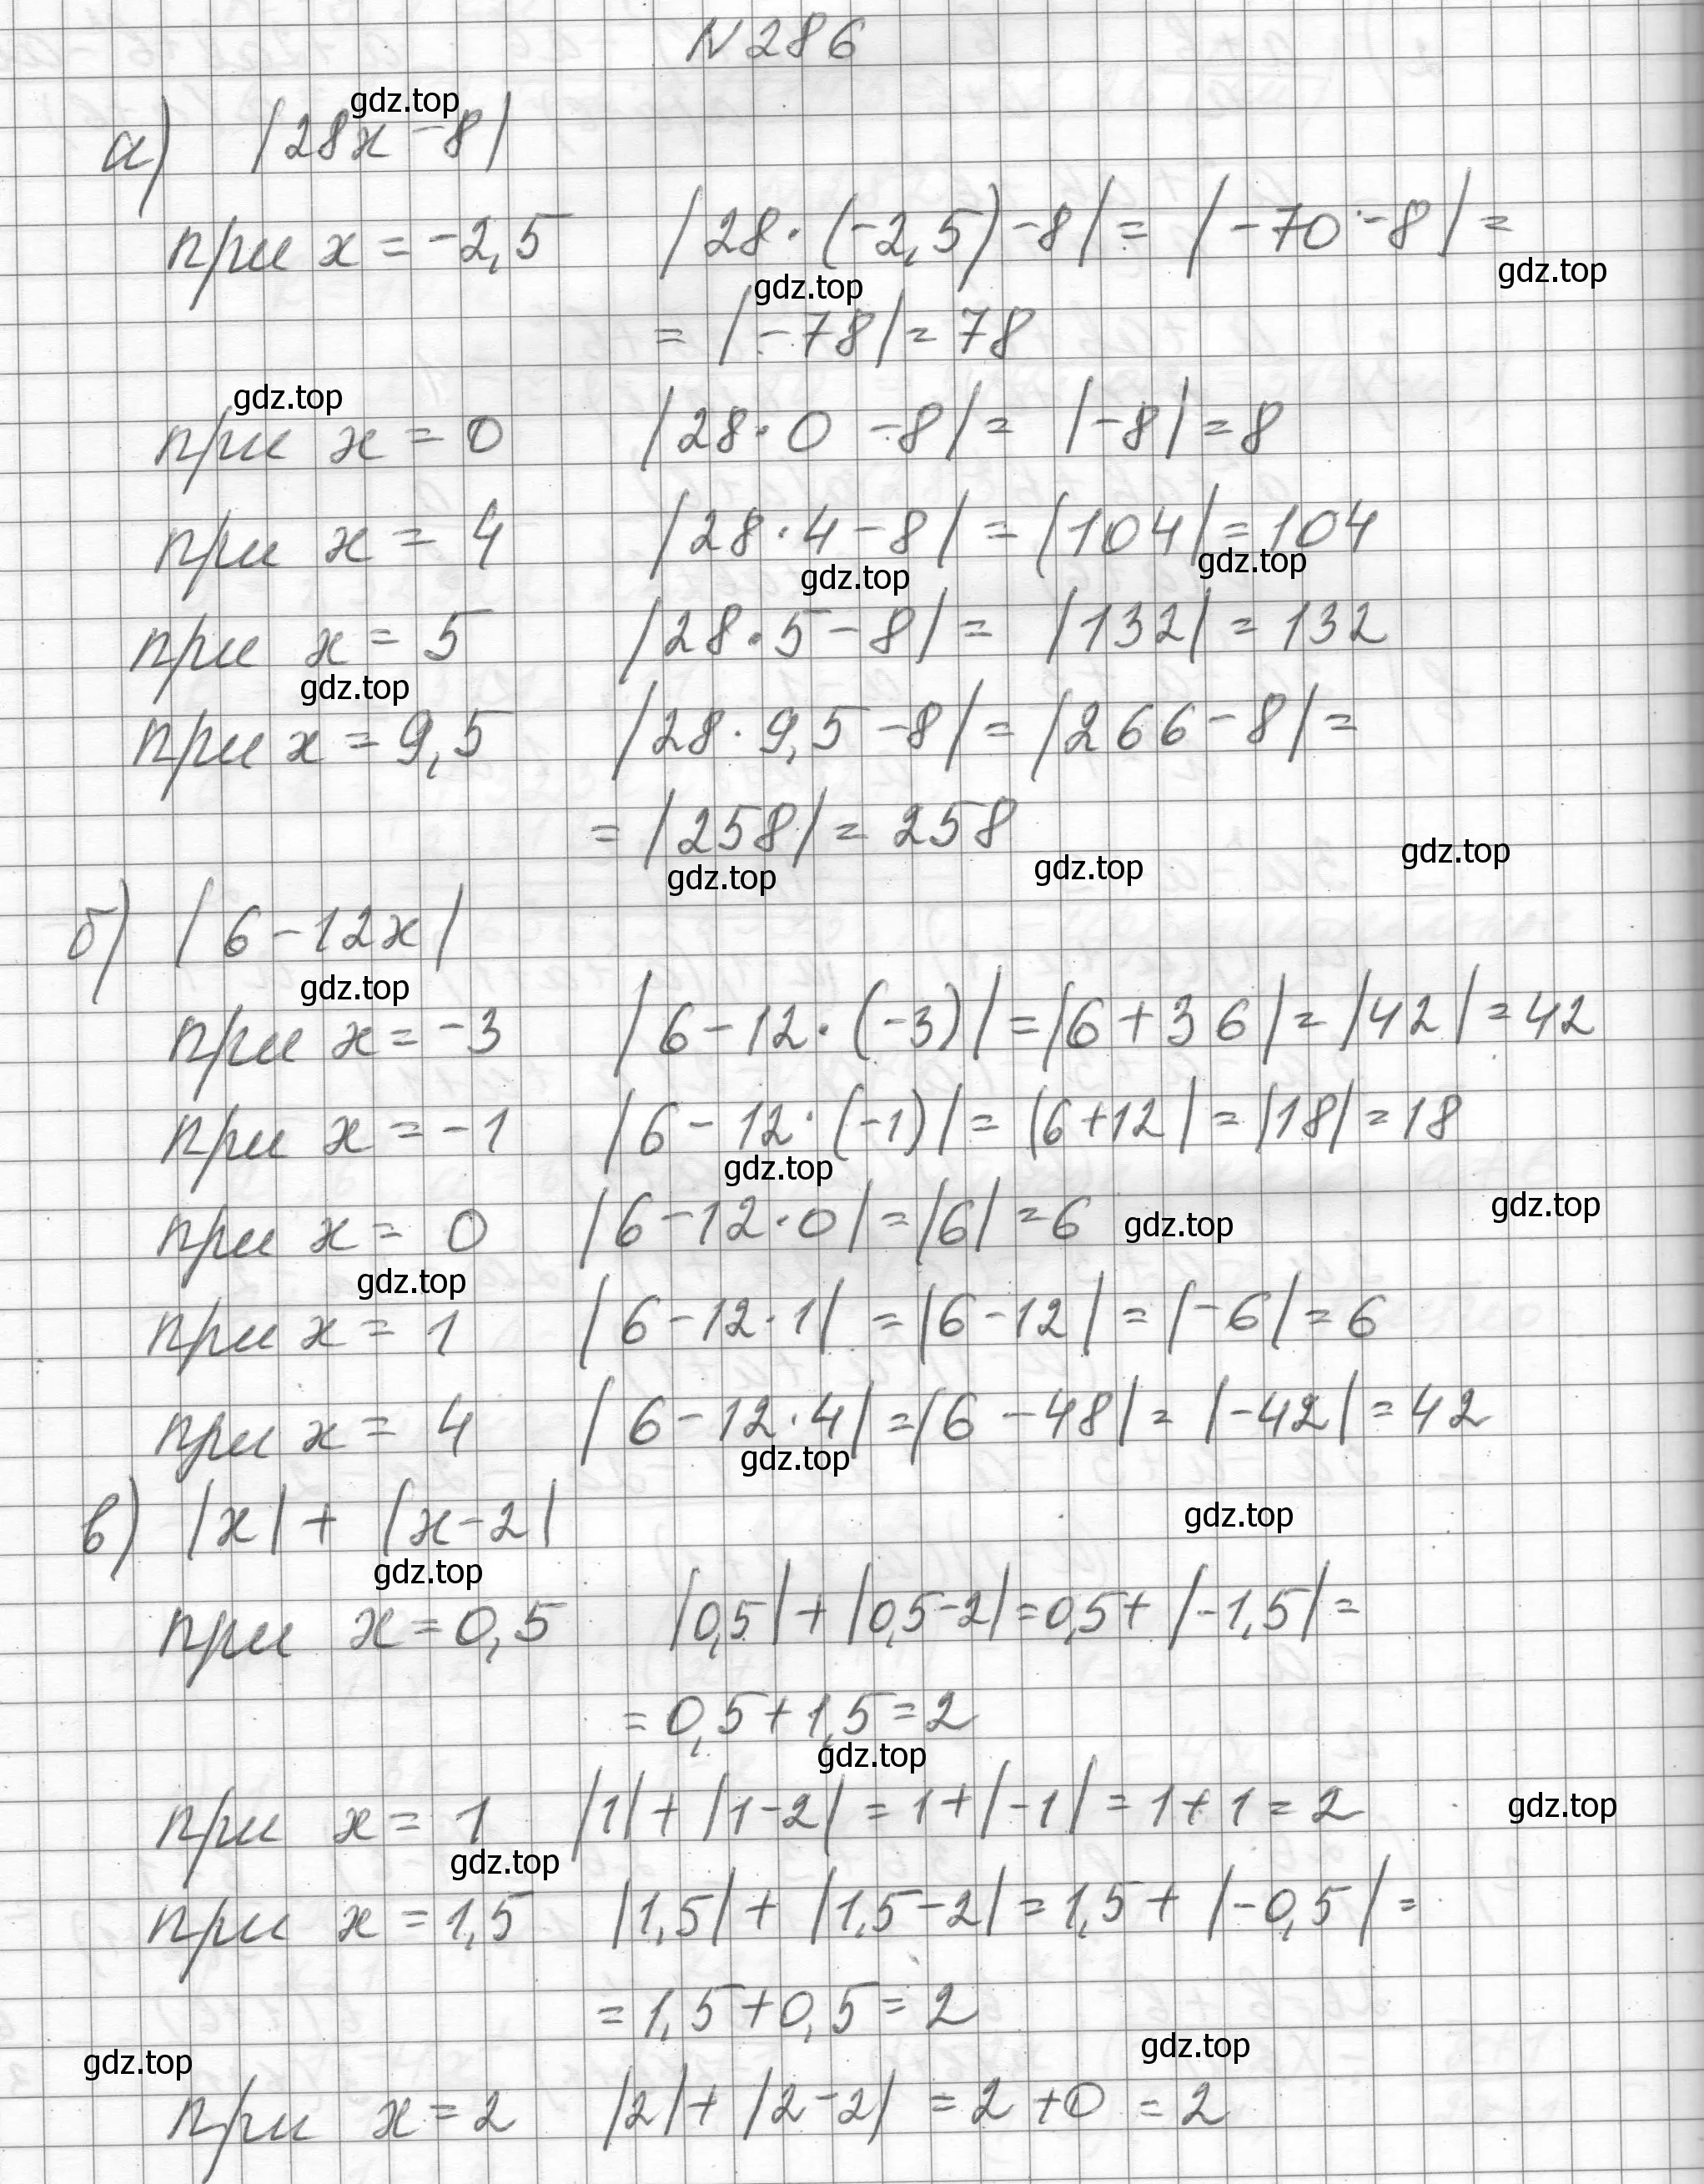 N 286
gdz.top
а) |28x - 8|
при x = -2,5 |28·(-2,5) - 8| = |-70 - 8| =
gdz.top
gdz.top
= |-78| = 78
gdz.top
при x = 0 |28·0 - 8| = |-8| = 8
при x = 4 |28·4 - 8| = |104| = 104
gdz.top gdz.top
при x = 5 |28·5 - 8| = |132| = 132
gdz.top
при x = 9,5 |28·9,5 - 8| = |266 - 8| =
= |258| = 258
gdz.top gdz.top gdz.top
б) |6 - 12x|
gdz.top
при x = -3 |6 - 12·(-3)| = |6 + 36| = |42| = 42
при x = -1 |6 - 12·(-1)| = |6 + 12| = |18| = 18
gdz.top
при x = 0 |6 - 12·0| = |6| = 6
gdz.top gdz.top
gdz.top
при x = 1 |6 - 12·1| = |6 - 12| = |-6| = 6
при x = 4 |6 - 12·4| = |6 - 48| = |-42| = 42
gdz.top
в) |x| + |x - 2|
gdz.top
gdz.top
при x = 0,5 |0,5| + |0,5 - 2| = 0,5 + |-1,5| =
= 0,5 + 1,5 = 2
gdz.top
при x = 1 |1| + |1 - 2| = 1 + |-1| = 1 + 1 = 2
gdz.top
gdz.top
при x = 1,5 |1,5| + |1,5 - 2| = 1,5 + |-0,5| =
= 1,5 + 0,5 = 2
gdz.top gdz.top
при x = 2 |2| + |2 - 2| = 2 + 0 = 2